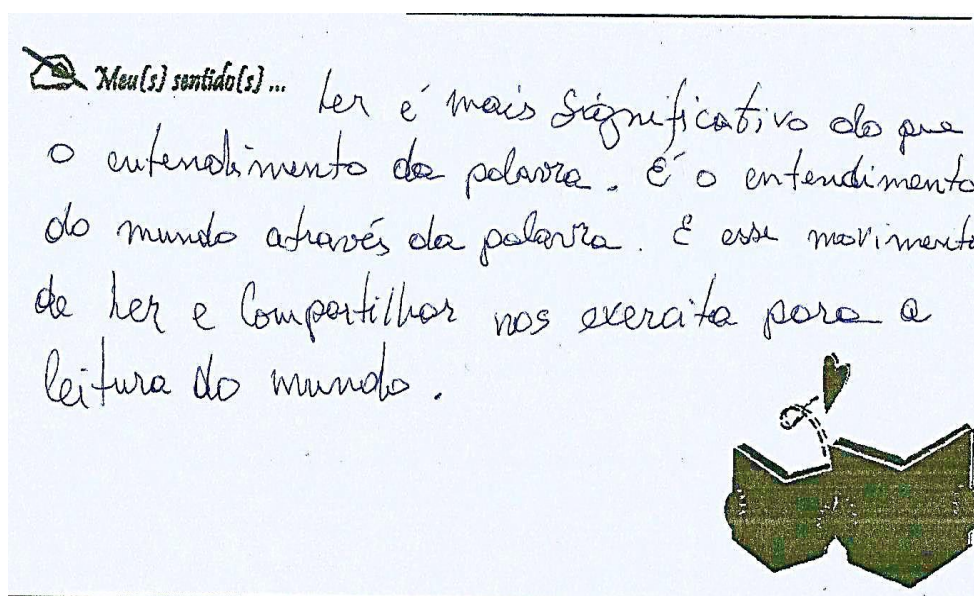 Meu(s) sentido(s)... Ler é mais significativo do que
o entendimento da palavra. É o entendimento
do mundo através da palavra. E esse movimento
de ler e compartilhar nos exercita para a
leitura do mundo.